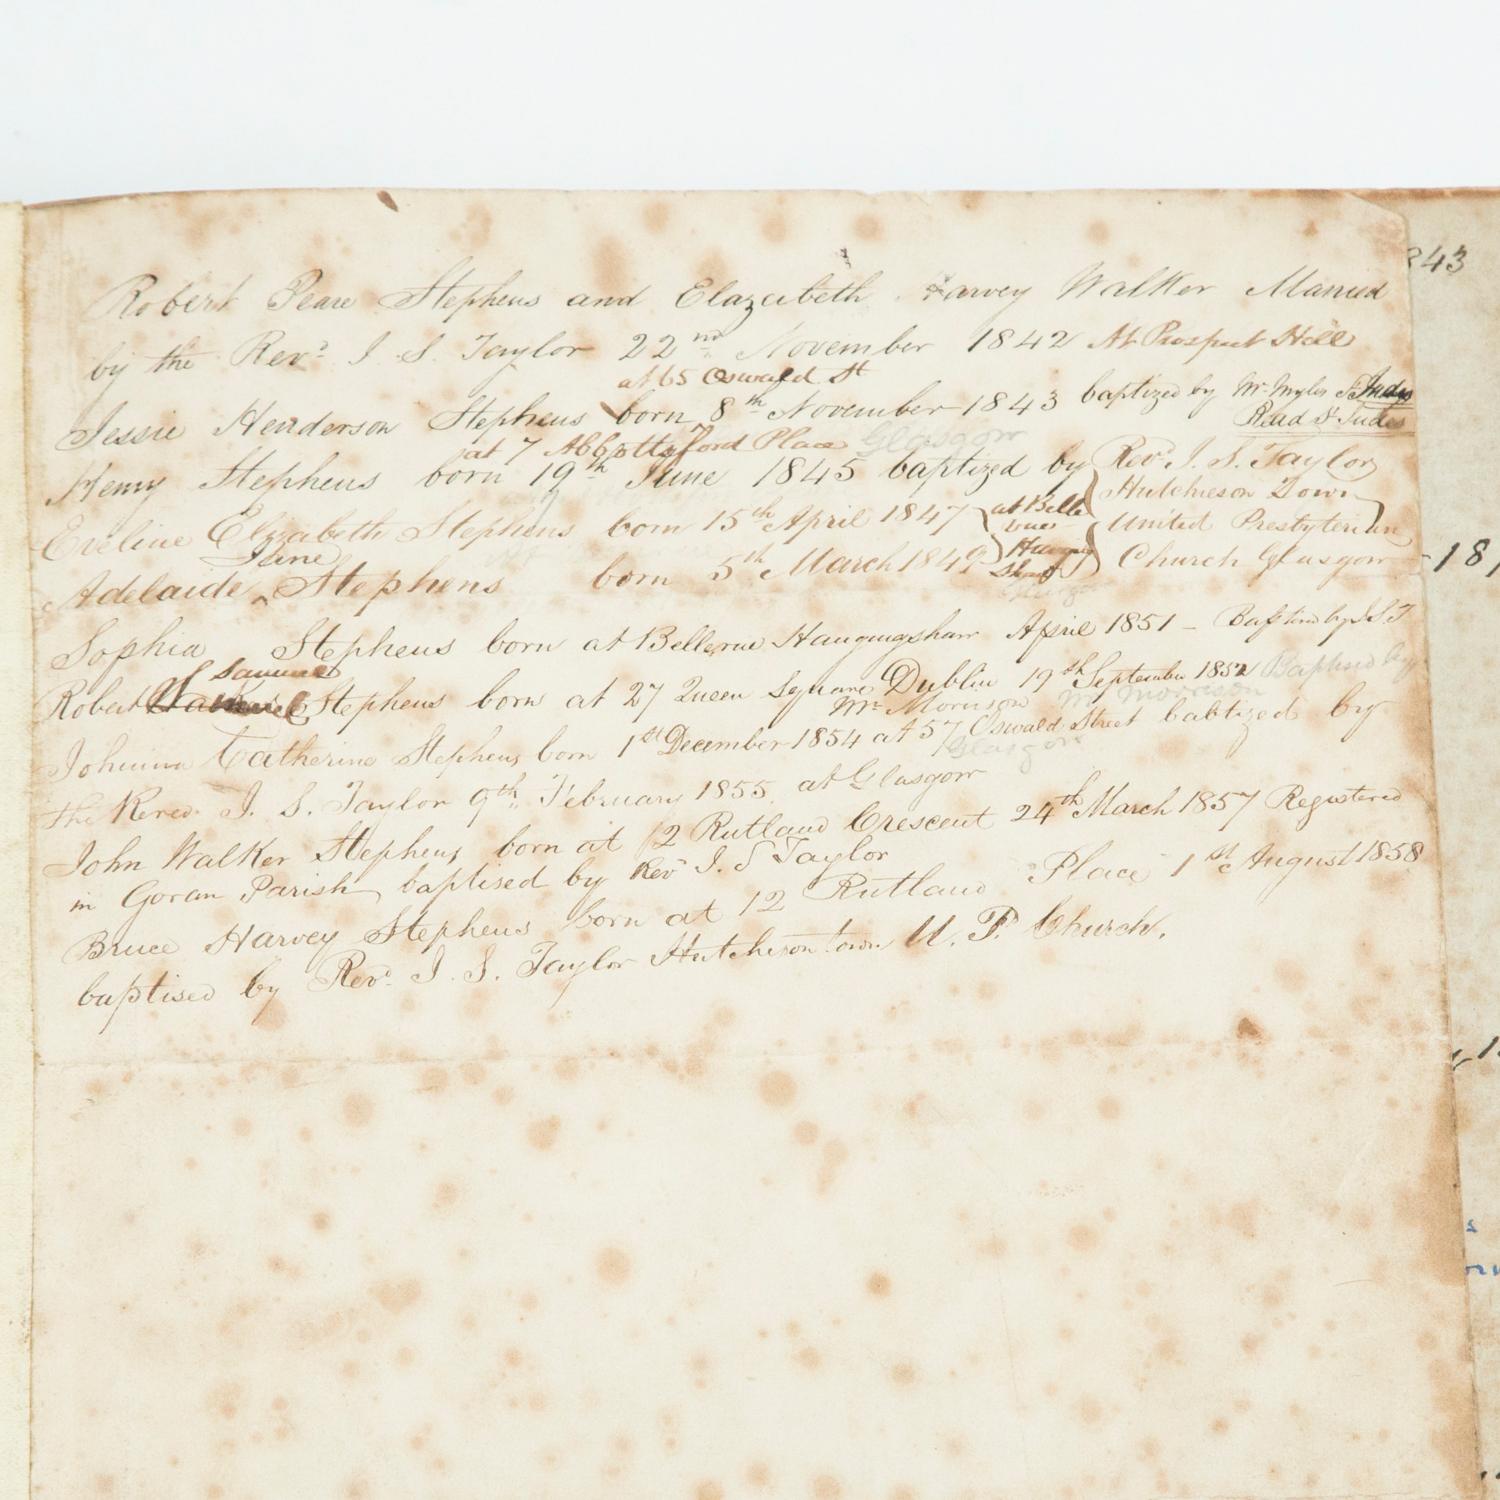 Robert Peare Stephens and Elazabeth Harvey Walker Married
by the Revd. J. S. Taylor 22nd November 1842 At Prospect Hill
at 65 Oswald St
Jessie Henderson Stephens born 8th November 1843 baptized by Mr Myles St Judes
Read St Judes
at 7 Abbottsford Place Glasgow
Henry Stephens born 19th June 1845 baptized by Revd J. S. Taylor
Hutchieson Town
Eveline Elizabeth Stephens born 15th April 1847 at Belle vue United Presbyterian
Jane
Adelaide ‸ Stephens born 5th March 1849 Church Glasgow
Sophia Stephens born at Bellevue Haugingshaw April 1851 - Baptised by J. S. T
Samuel
Robert Stephens born at 27 Queen Square Dublin 19th September 1852 Baptised by
Mr Morrison Mr Morrison
Johnina Catherine Stephens born 1st December 1854 at 57 Oswald Street babtized by
Glasgow
the Revd. J. S. Taylor 9th February 1855 at Glasgow
John Walker Stephens born at 12 Rutland Crescent 24th March 1857 Registered
in Goran Parish baptised by Revd J. S Taylor
Bruce Harvey Stephens born at 12 Rutland Place 1st August 1858
baptised by Revd. J. S. Taylor Hutchesontown U. P. Church.
843
18